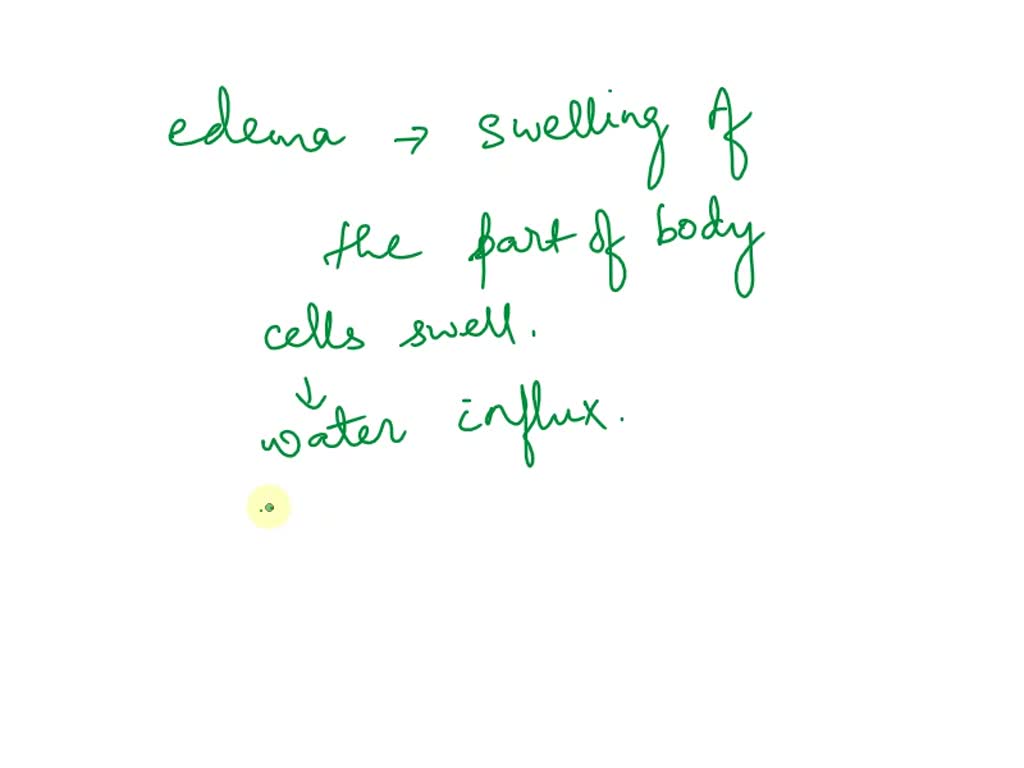 edema → swelling of
the part of body
cells swell.
↓
water influx.